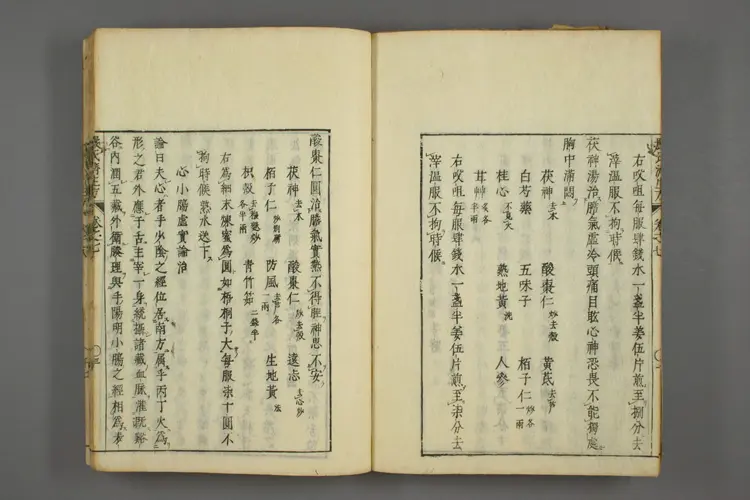 右㕮咀每服肆錢水一盞半姜伍片煎至捌分去
滓溫服不拘時候
茯神湯治膽氣虛冷頭痛目眩心神恐畏不能獨處
胸中滿悶
茯神去木 酸棗仁炒去殼 黃芪去芦
白芍藥 五味子 栢子仁炒各一兩
桂心不見火 熟地黃洗 人參
甘艸炙各半兩
右㕮咀每服肆錢水一盞半姜伍片煎至柒分去
滓溫服不拘時候
酸棗仁圓治膽氣實熱不得睡神思不安
茯神去木 酸棗仁炒去殼 遠志去心炒
栢子仁炒別研 防風去芦各一兩 生地黃洗
枳殼去穰麩炒各半兩 青竹茹二錢半
右為細末煉蜜為圓如梧桐子大每服柒十圓不
拘時候熟水送下
心小腸虛實論治
論曰夫心者手少陰之經位居南方屬乎丙丁火為
形之君外應于舌主宰一身統攝諸藏血脈灌溉谿
谷內潤五藏外衛腠理與手陽明小腸之經相為表